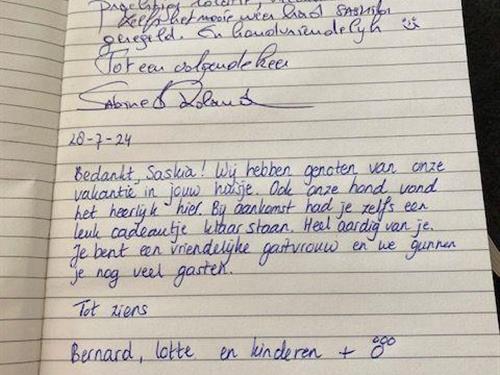 Zelfs het mooie weer had Saskia
geregeld. En hondvriendelijk
Tot een volgende keer
Sabine & Roland
28-7-24
Bedankt, Saskia! Wij hebben genoten van onze
vakantie in jouw huisje. Ook onze hond vond
het heerlijk hier. Bij aankomst had je zelfs een
leuk cadeautje klaar staan. Heel aardig van je.
Je bent een vriendelijke gastvrouw en we gunnen
je nog veel gasten.
Tot ziens
Bernard, Lotte en kinderen +